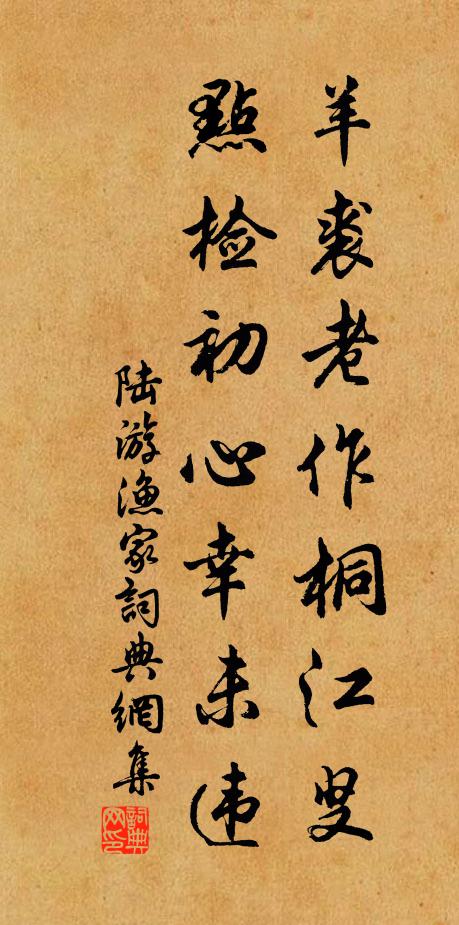 羊裘老作桐江叟
點檢初心幸未违
陆游渔家詞典網集
詞典网印